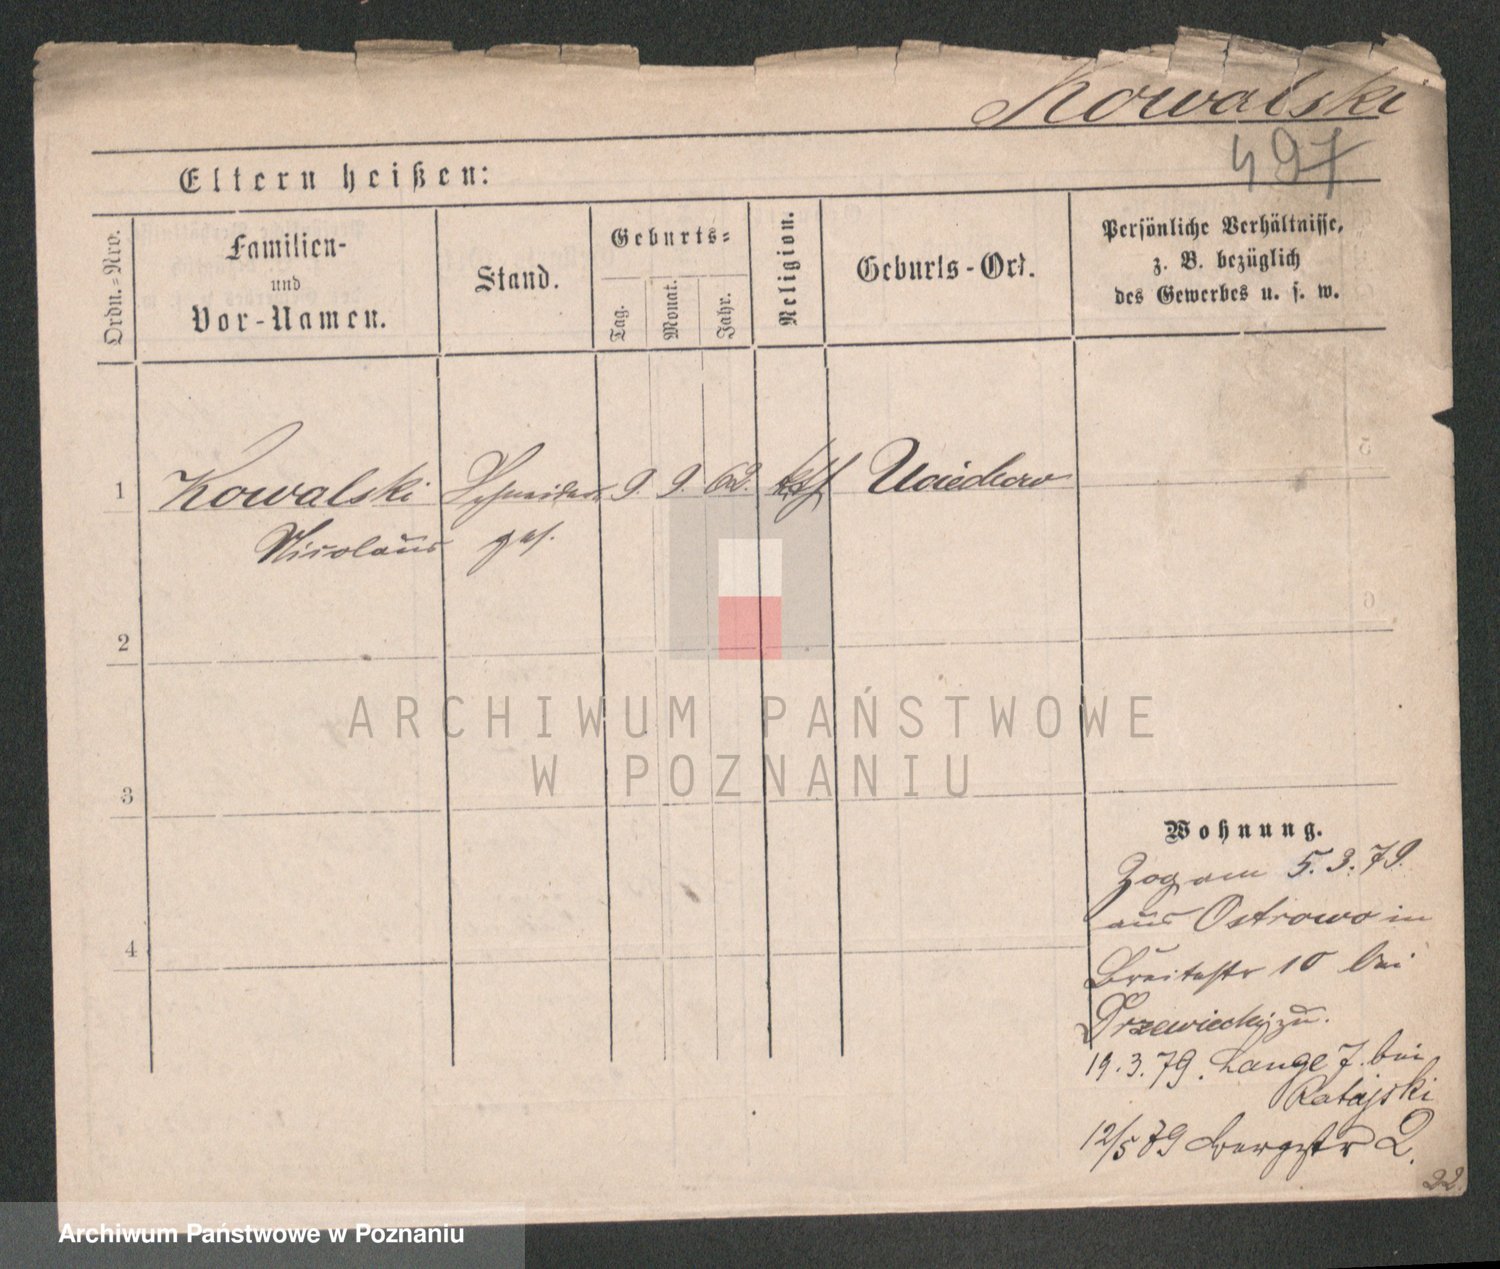 Kowalski
497
Eltern heißen:
Ordn.-Nro.
Familien-
und
Vor-Namen.
Stand.
Geburts-
Tag.
Monat.
Jahr.
Religion.
Geburts-Ort.
Persönliche Verhältnisse,
z. B. bezüglich
des Gewerbes u. s. w.
1 Kowalski Schneider 9. 9. 62. kth
Nicolaus ges.
2
3
4
ARCHIWUM PAŃSTWOWE
W POZNANIU
Wohnung.
Zog am 5.3.79.
aus Ostrowo in
Breitestr 10 bei
Drzewiecki zu.
19.3.79. Lange 7. bei
Ratajski
12/5 79 Bergstr 2.
22.
Archiwum Państwowe w Poznaniu